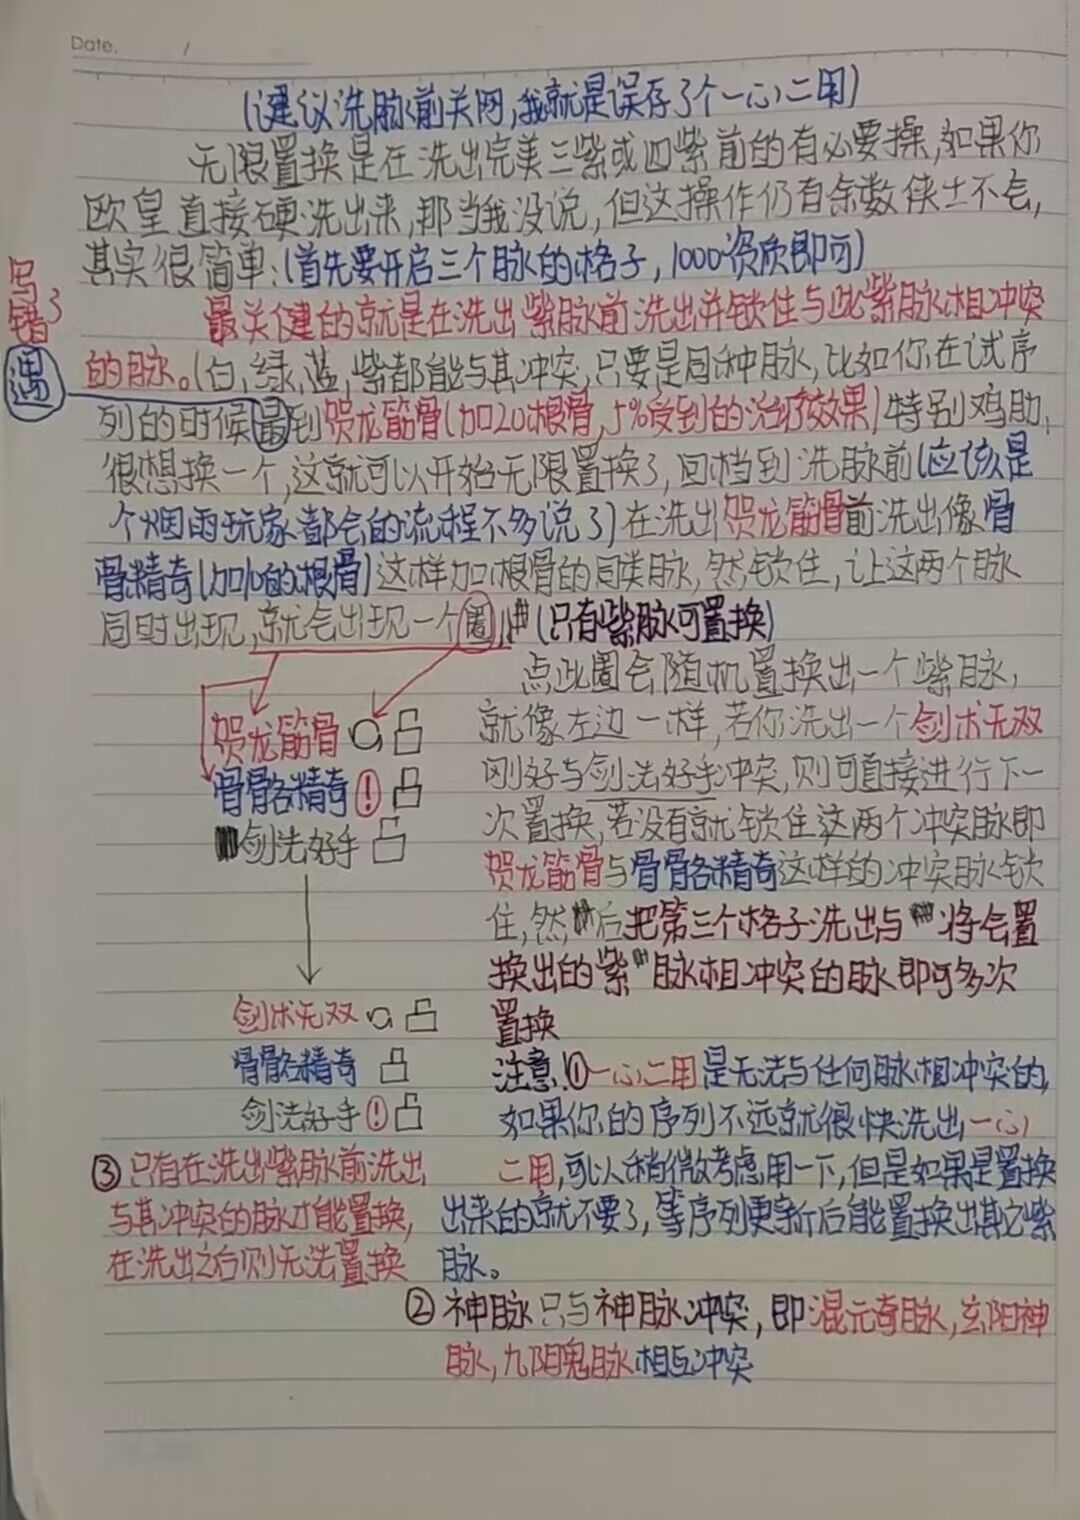 Date. /
(建议洗脉前关网,我就是误存了个一心二用)
无限置换是在洗出完美三紫或四紫前的有必要操,如果你
欧皇直接硬洗出来,那当我没说,但这操作仍有余数侠士不会,
其实很简单:(首先要开启三个脉的格子,1000资质即可)
最关健的就是在洗出紫脉前洗出并锁住与此紫脉相冲突
写错了
遇
的脉。(白,绿,蓝,紫都能与其冲突,只要是同种脉,比如你在试序
列的时候到贺龙筋骨(加20根骨,5%受到的治疗效果)特别鸡肋,
很想换一个,这就可以开始无限置换了,回档到洗脉前(应该是
个烟雨玩家都会的流程不多说了)在洗出贺龙筋骨前洗出像骨
骨精奇(加10的根骨)这样加根骨的同类脉,然锁住,让这两个脉
同时出现,就会出现一个圈(只有紫脉可置换)
点此圈会随机置换出一个紫脉,
就像左边一样,若你洗出一个剑术无双
刚好与剑法好手冲突,则可直接进行下一
次置换,若没有就锁住这两个冲突脉即
贺龙筋骨与骨骼精奇这样的冲突脉锁
住,然后把第三个格子洗出与将会置
换出的紫脉相冲突的脉即可多次
置换
贺龙筋骨
骨骼精奇!
剑法好手
剑术无双
骨骼精奇
剑法好手!
注意!①一心二用是无法与任何脉相冲突的,
如果你的序列不远就很快洗出一心
二用,可以稍微考虑用一下,但是如果是置换
出来的就不要了,等序列更新后能置换出其之紫
脉。
③只有在洗出紫脉前洗出
与其冲突的脉才能置换,
在洗出之后则无法置换
②神脉只与神脉冲突,即混元奇脉,玄阳神
脉,九阴鬼脉相互冲突